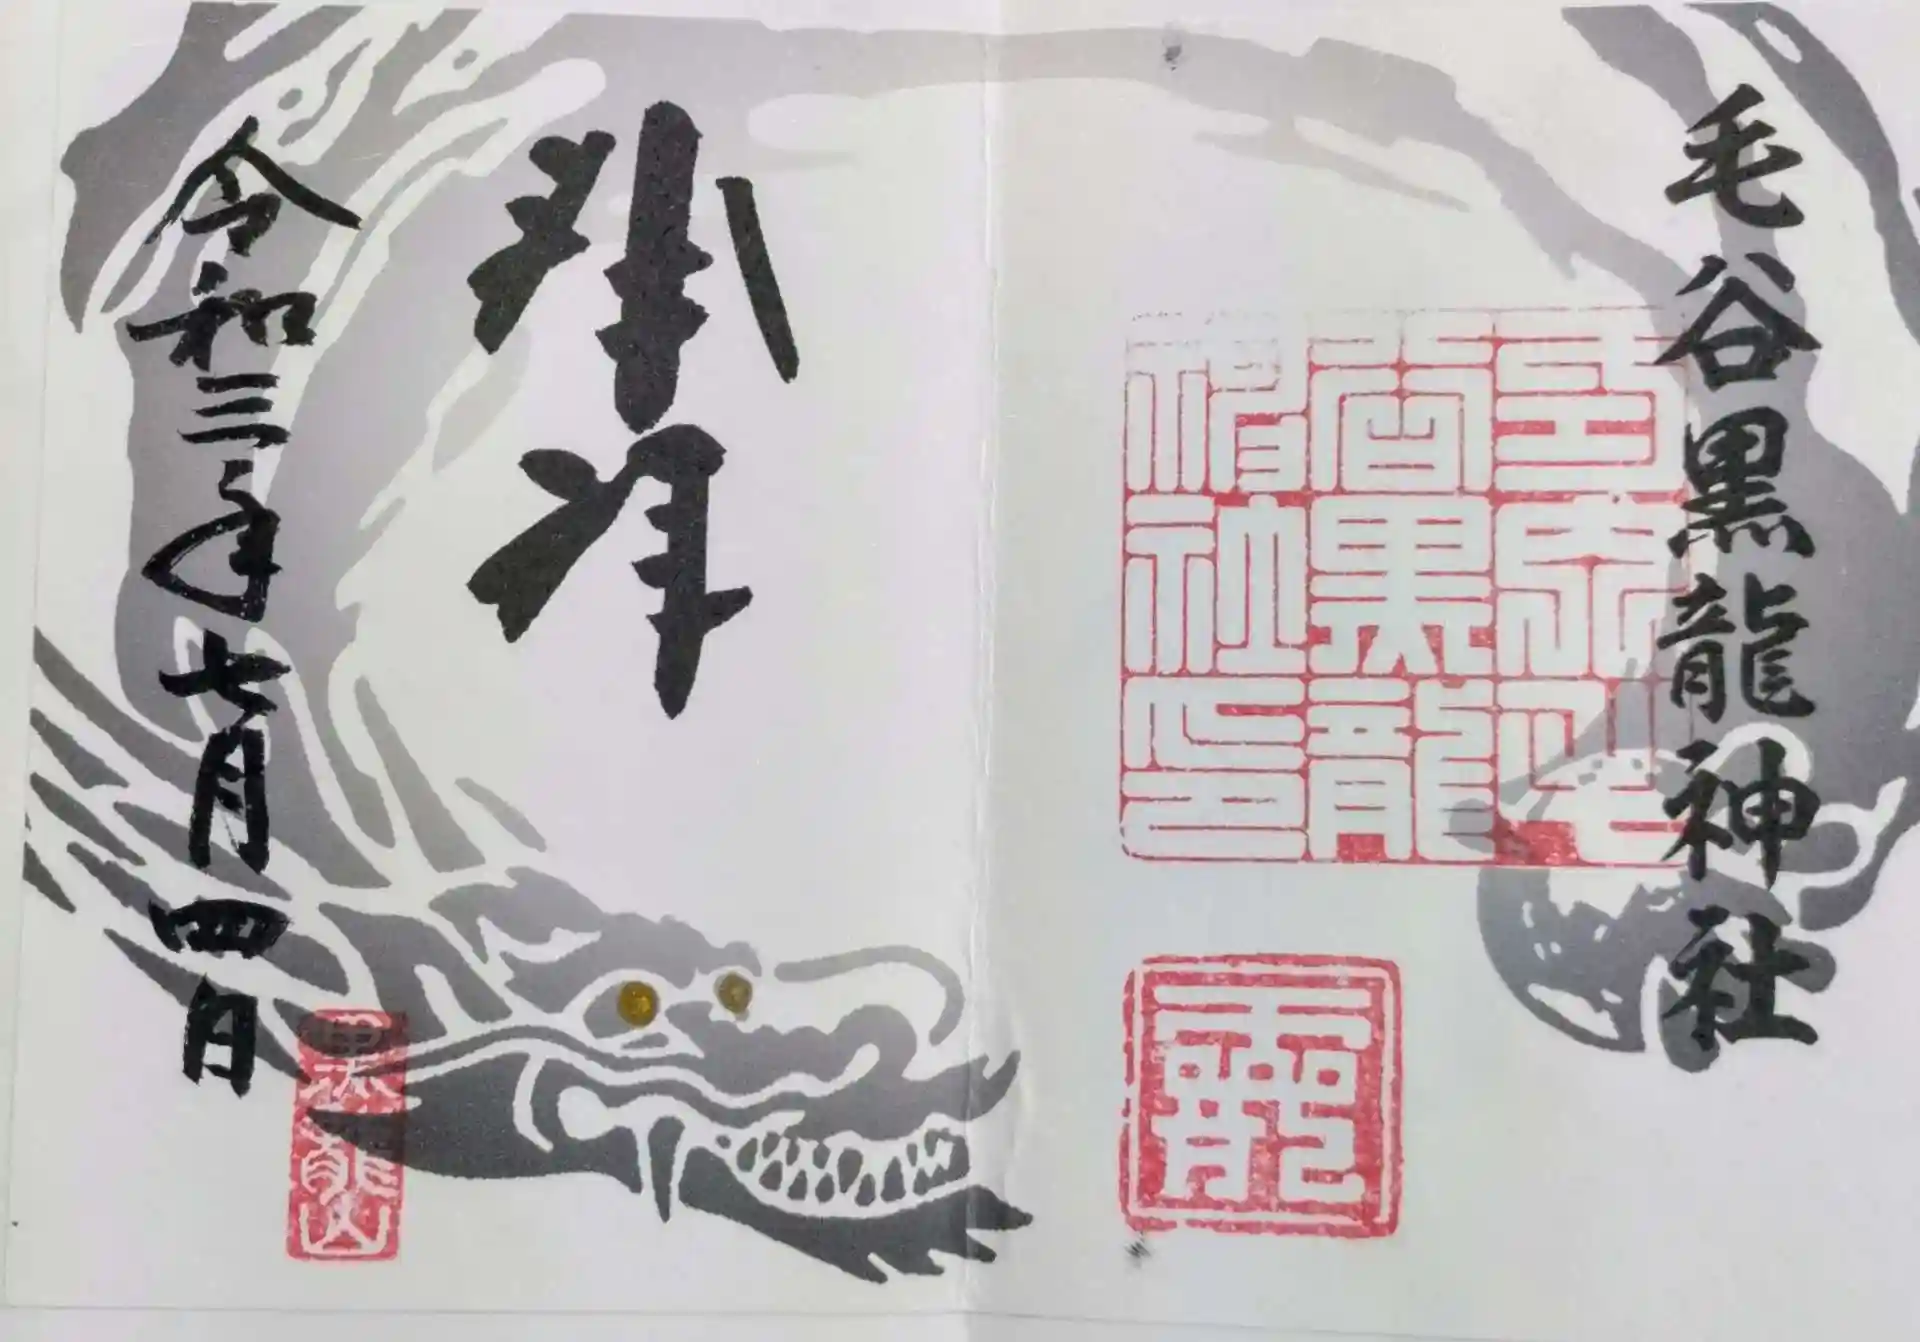 毛谷黒龍神社
毛
谷黒龍
神社印
龗
奉拝
令和三年七月四日
黒龍山